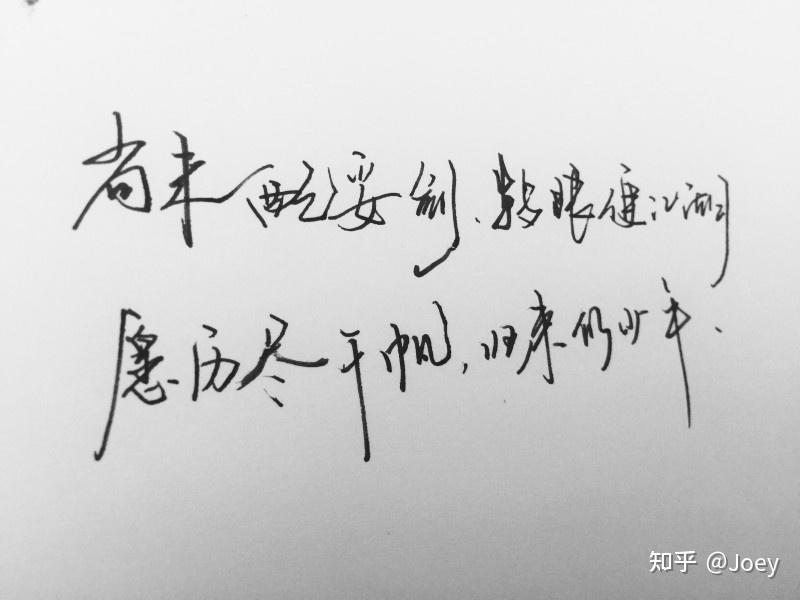 尚未配妥剑、转眼便江湖
愿历尽千帆，归来仍少年、
知乎 @Joey